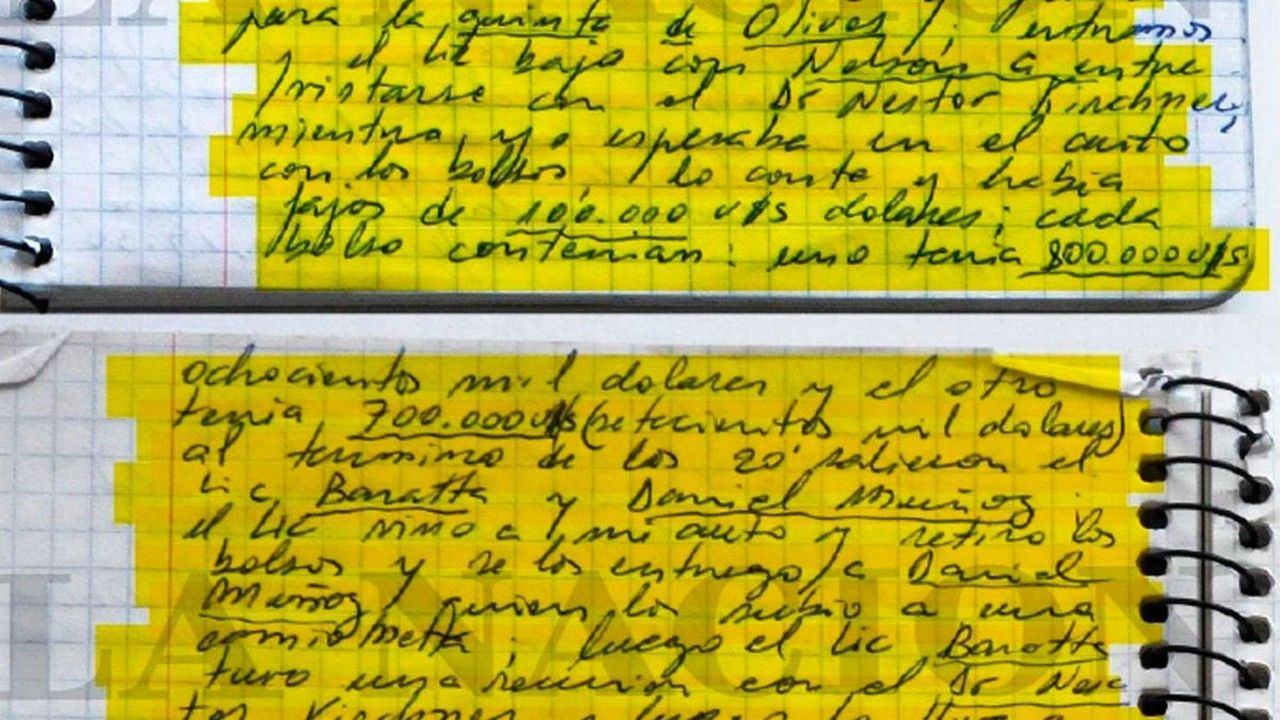 LA NACION
para la quinta de Olivos); entramos
y el Lic bajo con Nelson a entre
/vistarse con el Dr Nestor Kirchner,
mientras yo esperaba en el auto
con los bolsos / lo conte y había
fajos de 100.000 u$s dolares; cada
bolso contenian: uno tenia 800.000 u$s
ochocientos mil dolares y el otro
tenia 700.000 u$s (setecientos mil dolares)
al termino de los 20' salieron el
Lic Baratta y Daniel Muñoz
el Lic vino a mi auto y retiro los
bolsos y se los entrego a Daniel
Muñoz quien los subio a una
camioneta; luego el Lic Baratta
LA NACION
tuvo una reunion con el Dr Nes
tor Kirchner